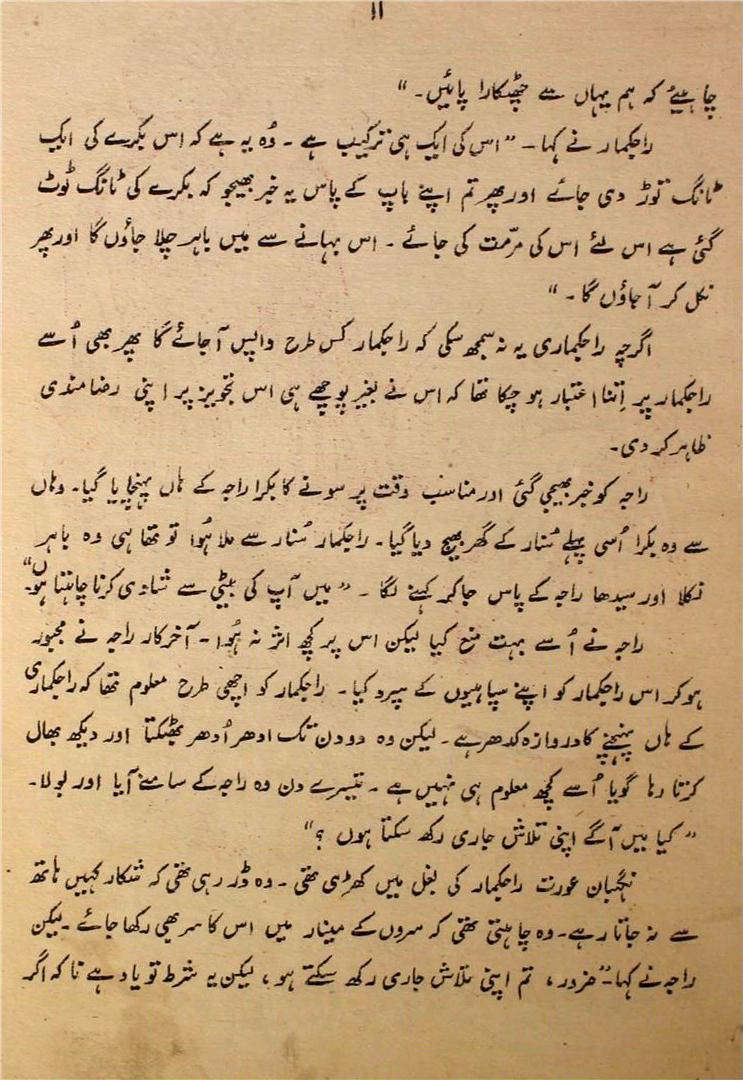 ۱۱
چاہیئے کہ ہم یہاں سے چھٹکارا پائیں۔"
راجکمار نے کہا۔ "اس کی ایک ہی ترکیب ہے۔ وُہ یہ ہے کہ اس بکرے کی ایک
ٹانگ توڑ دی جائے اور پھر تم اپنے باپ کے پاس یہ خبر بھیجو کہ بکرے کی ٹانگ ٹوٹ
گئی ہے اس لئے اس کی مرّمت کی جائے۔ اس بہانے سے میں باہر چلا جاؤں گا اور پھر
نکل کر آجاؤں گا۔"
اگرچہ راجکماری یہ نہ سمجھ سکی کہ راجکمار کس طرح واپس آجائے گا پھر بھی اُسے
راجکمار پر اِتنا اعتبار ہو چکا تھا کہ اس نے بغیر پوچھے ہی اس تجویز پر اپنی رضامندی
ظاہر کر دی۔
راجہ کو خبر بھیجی گئی اور مناسب وقت پر سونے کا بکرا راجہ کے ہاں پہنچایا گیا۔ وہاں
سے وہ بکرا اُسی پہلے سُنار کے گھر بھیج دیا گیا۔ راجکمار سُنار سے ملا ہُوا تو تھا ہی وہ باہر
نکلا اور سیدھا راجہ کے پاس جا کر کہنے لگا۔ "میں آپ کی بیٹی سے شادی کرنا چاہتا ہوں"۔
راجہ نے اُسے بہت منع کیا لیکن اس پر کچھ اثر نہ ہُوا۔ آخرکار راجہ نے مجبور
ہو کر اس راجکمار کو اپنے سپاہیوں کے سپرد کیا۔ راجکمار کو اچھی طرح معلوم تھا کہ راجکماری
کے ہاں پہنچنے کا دروازہ کدھر ہے۔ لیکن وہ دو دن تک ادھر اُدھر بھٹکتا اور دیکھ بھال
کرتا رہا گویا اُسے کچھ معلوم ہی نہیں ہے۔ تیسرے دن وہ راجہ کے سامنے آیا اور بولا۔
"کیا میں آگے اپنی تلاش جاری رکھ سکتا ہوں؟"
نگہبان عورت راجکمار کی بغل میں کھڑی تھی۔ وہ ڈر رہی تھی کہ شکار کہیں ہاتھ
سے نہ جاتا رہے۔ وہ چاہتی تھی کہ سروں کے مینار میں اس کا سر بھی رکھا جائے۔ لیکن
راجہ نے کہا۔ "ضرور، تم اپنی تلاش جاری رکھ سکتے ہو، لیکن یہ شرط تو یاد ہے نا کہ اگر